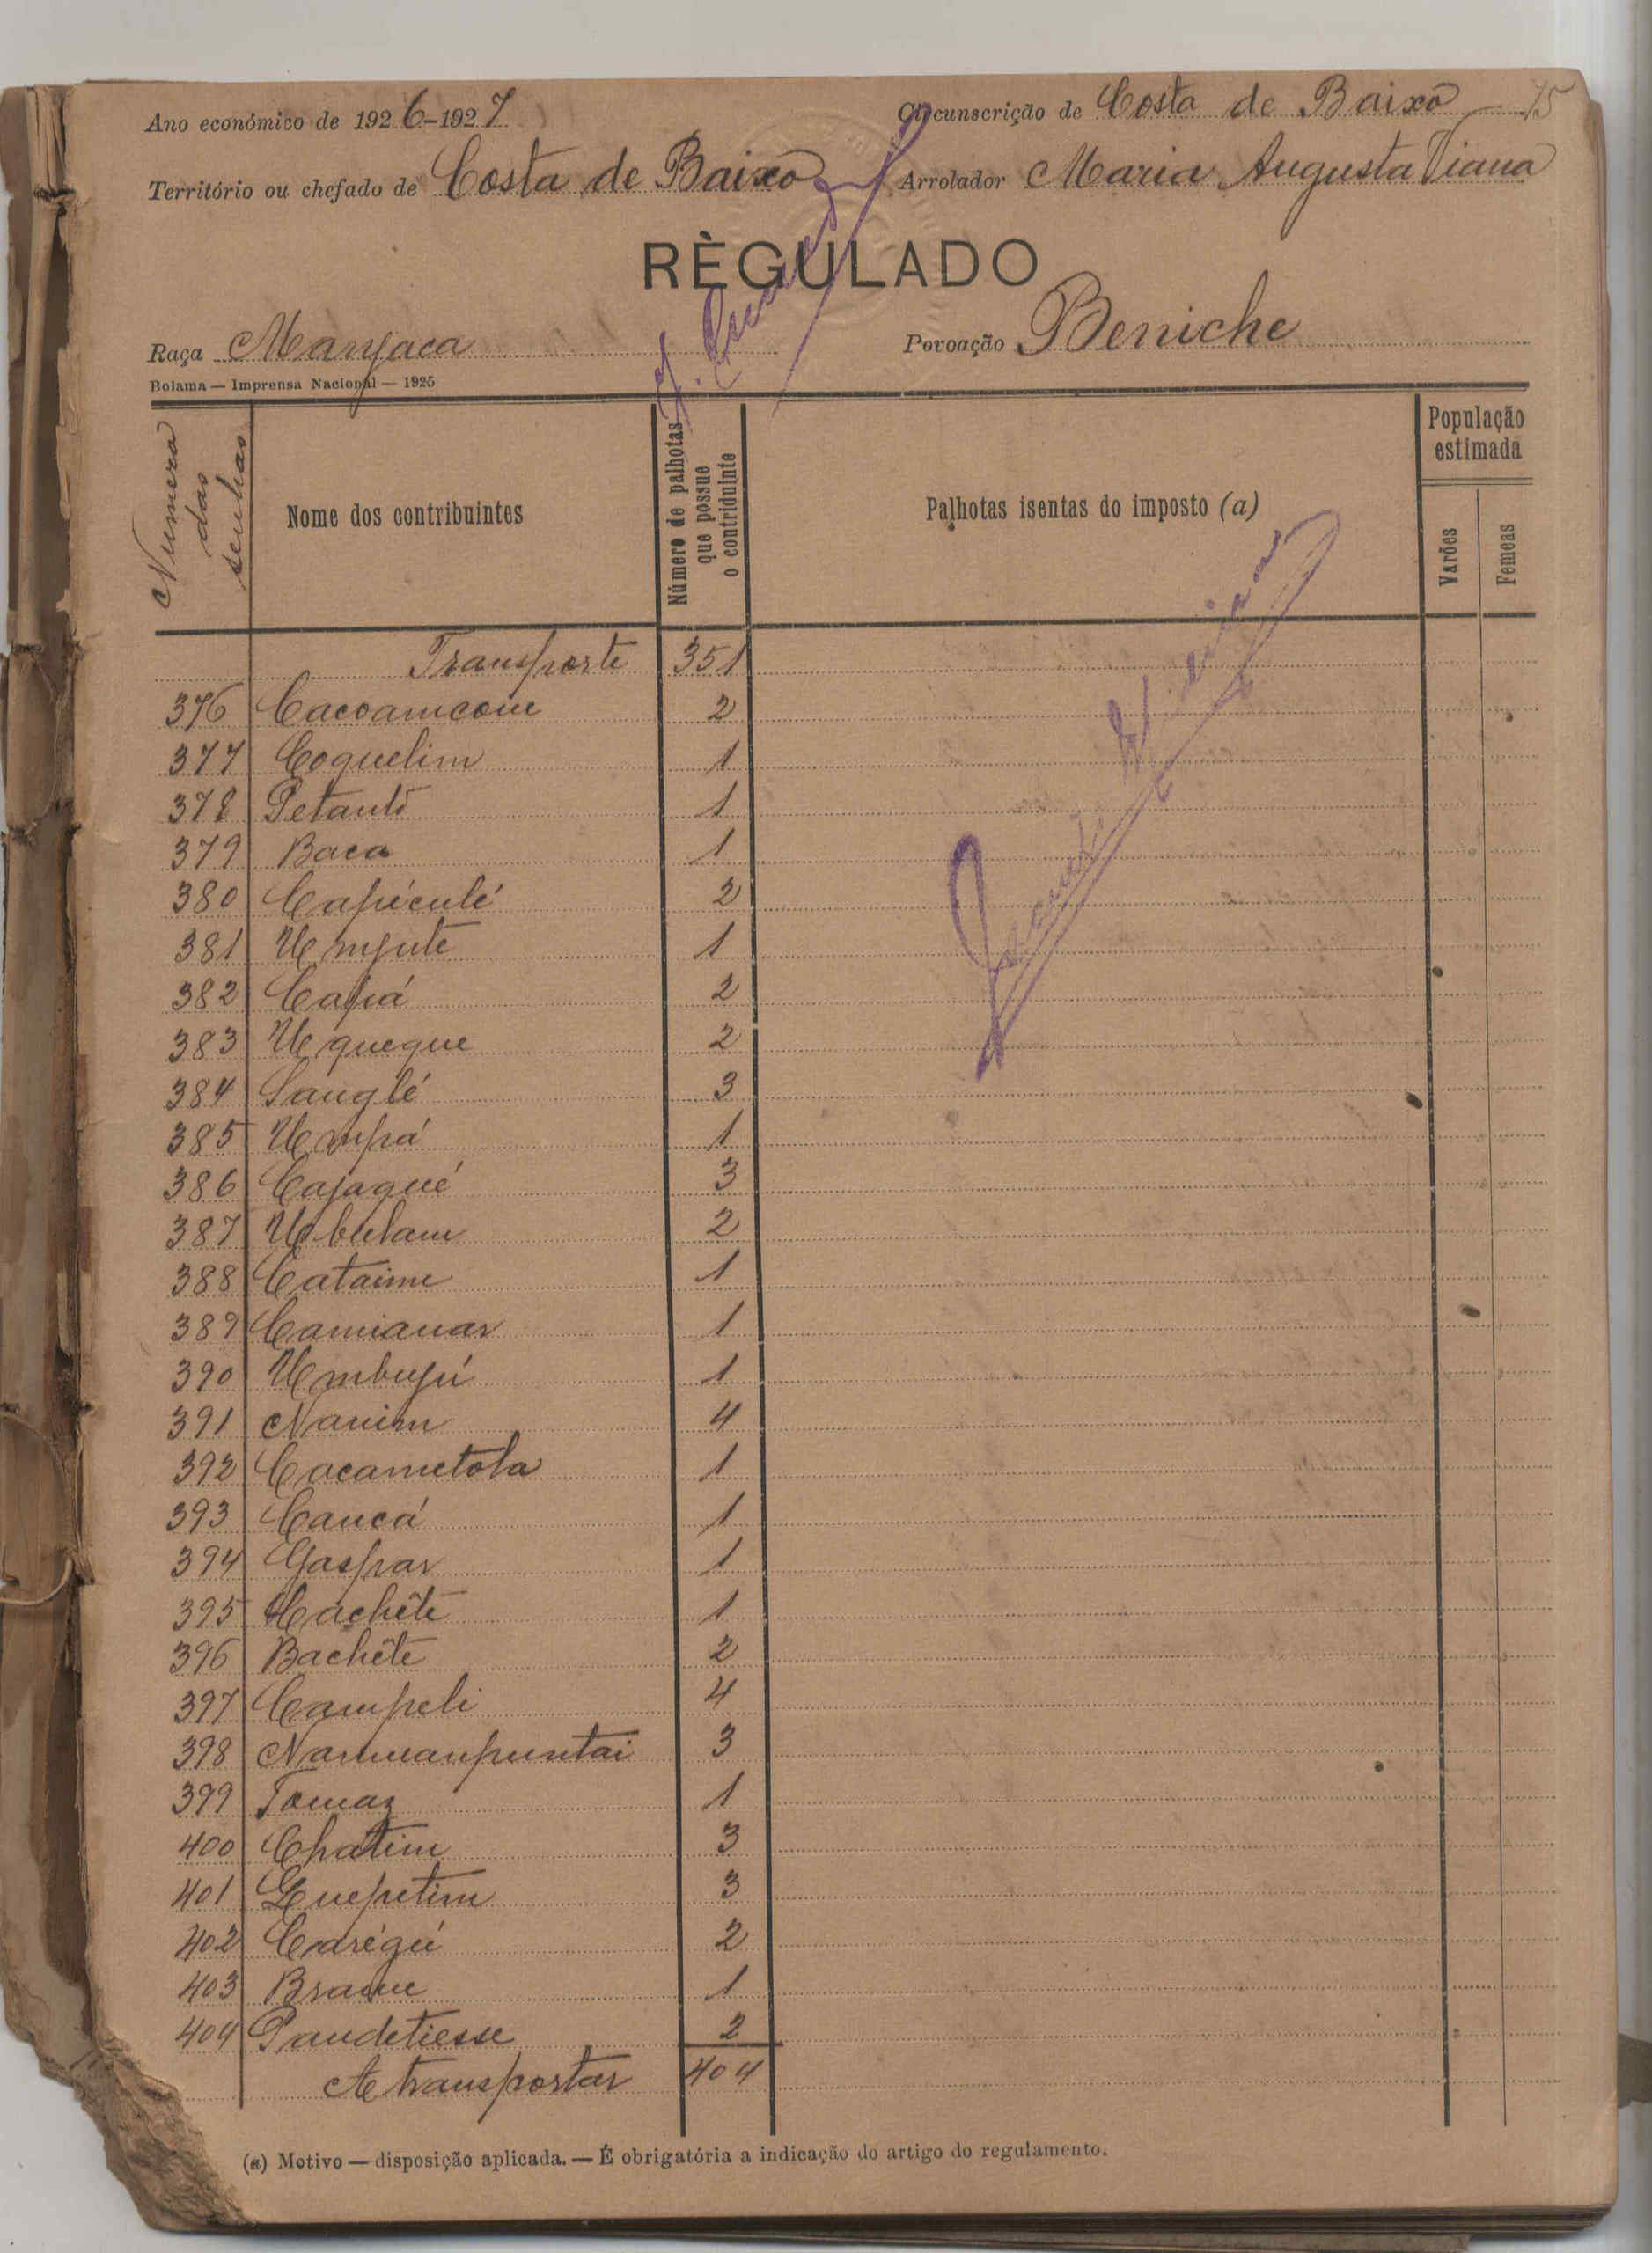 Ano económico de 1926-1927
Circunscrição de Costa de Baixo 75
Território ou chefado de Costa de Baixo
Arrolador Maria Augusta Viana
RÈGULADO
Raça Manjaca
Povoação Beniche
Bolama — Imprensa Nacional — 1925
Numero das senhas
Nome dos contribuintes
Número de palhotas que possue o contriduinte
Palhotas isentas do imposto (a)
População estimada
Varões
Femeas
Transporte 351
376 Cacoamcome 2
377 Coquelim 1
378 Petantò 1
379 Baca 1
380 Capéculé 2
381 Umjute 1
382 Capá 2
383 Uqueque 2
384 Sanglé 3
385 Umpá 1
386 Cajaqué 3
387 Ubulam 2
388 Cataime 1
389 Camianar 1
390 Umbujú 1
391 Nanim 4
392 Cacametola 1
393 Cancá 1
394 Gaspar 1
395 Cachête 1
396 Bachête 2
397 Campeli 4
398 Narmeanpuntai 3
399 Tomaz 1
400 Chatim 3
401 Guepetim 3
402 Carégú 2
403 Brame 1
404 Pandetiesse 2
A transportar 404
(a) Motivo — disposição aplicada. — É obrigatória a indicação do artigo do regulamento.